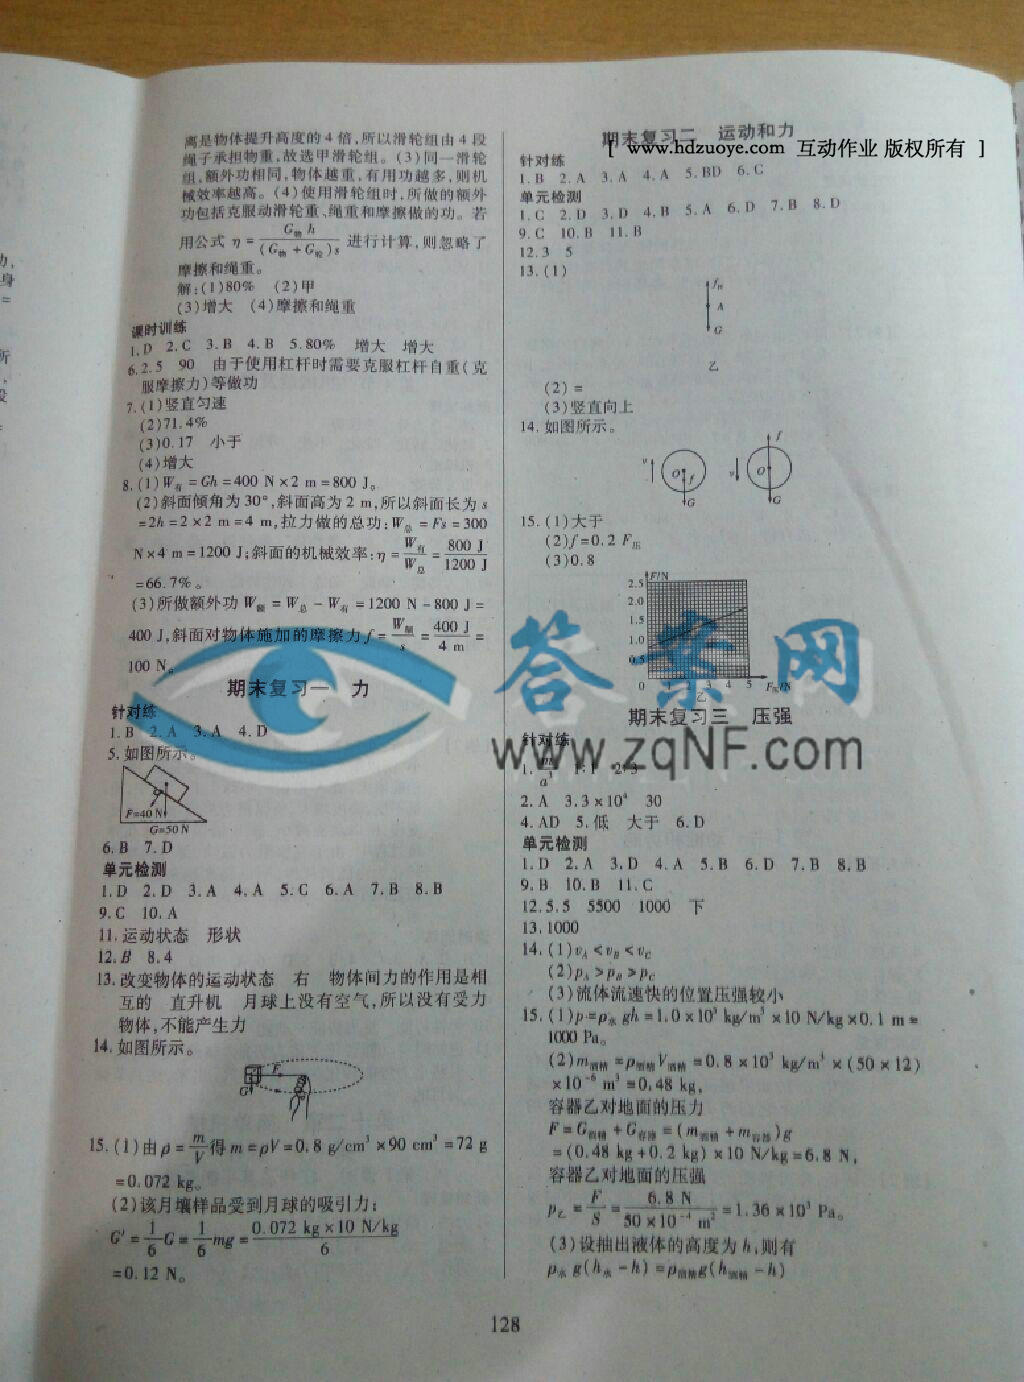 离是物体提升高度的4倍,所以滑轮组由4段
绳子承担物重,故选甲滑轮组。(3)同一滑轮
组,额外功相同,物体越重,有用功越多,则机
械效率越高。(4)使用滑轮组时,所做的额外
功包括克服动滑轮重、绳重和摩擦做的功。若
用公式 η=G物h/(G物+G轮)s 进行计算,则忽略了
摩擦和绳重。
解:(1)80% (2)甲
(3)增大 (4)摩擦和绳重
课时训练
1.D 2.C 3.B 4.B 5.80% 增大 增大
6.2.5 90 由于使用杠杆时需要克服杠杆自重(克
服摩擦力)等做功
7.(1)竖直匀速
(2)71.4%
(3)0.17 小于
(4)增大
8.(1)W有=Gh=400 N×2 m=800 J。
(2)斜面倾角为30°,斜面高为2 m,所以斜面长为s
=2h=2×2 m=4 m,拉力做的总功:W总=Fs=300
N×4 m=1200 J;斜面的机械效率:η=W有/W总=800 J/1200 J
=66.7%。
(3)所做额外功W额=W总-W有=1200 N-800 J=
400 J,斜面对物体施加的摩擦力f=W额/s=400 J/4 m=
100 N。
期末复习一 力
针对练
1.B 2.A 3.A 4.D
5.如图所示。
F=40 N
G=50 N
6.B 7.D
单元检测
1.D 2.D 3.A 4.A 5.C 6.A 7.B 8.B
9.C 10.A
11.运动状态 形状
12.B 8.4
13.改变物体的运动状态 右 物体间力的作用是相
互的 直升机 月球上没有空气,所以没有受力
物体,不能产生力
14.如图所示。
F
G
15.(1)由ρ=m/V得m=ρV=0.8 g/cm³×90 cm³=72 g
=0.072 kg。
(2)该月壤样品受到月球的吸引力:
G′=1/6G=1/6mg=0.072 kg×10 N/kg/6
=0.12 N。
期末复习二 运动和力
[ www.hdzuoye.com 互动作业 版权所有 ]
针对练
1.B 2.A 3.A 4.A 5.BD 6.C
单元检测
1.C 2.D 3.D 4.B 5.A 6.D 7.B 8.D
9.C 10.B 11.B
12.3 5
13.(1)
A
G
乙
(2)=
(3)竖直向上
14.如图所示。
v O f G
v O f G
15.(1)大于
(2)f=0.2 F压
(3)0.8
F/N
2.5
2.0
1.5
1.0
0.5
0 1 2 3 4 5 F压/N
乙
期末复习三 压强
针对练
1. m/a³ 1:1 2:3
2.A 3.3×10⁴ 30
4.AD 5.低 大于 6.D
单元检测
1.D 2.A 3.D 4.A 5.B 6.D 7.B 8.B
9.B 10.B 11.C
12.5.5 5500 1000 下
13.1000
14.(1)vA<vB<vC
(2)pA>pB>pC
(3)流体流速快的位置压强较小
15.(1)p=ρ水gh=1.0×10³ kg/m³×10 N/kg×0.1 m=
1000 Pa。
(2)m酒精=ρ酒精V酒精=0.8×10³ kg/m³×(50×12)
×10⁻⁶ m³=0.48 kg,
容器乙对地面的压力
F=G酒精+G容器=(m酒精+m容器)g
=(0.48 kg+0.2 kg)×10 N/kg=6.8 N,
容器乙对地面的压强
p乙=F/S=6.8 N/50×10⁻⁴ m²=1.36×10³ Pa。
(3)设抽出液体的高度为h,则有
ρ水g(h水-h)=ρ酒精g(h酒精-h)
答案网
www.zqNF.com
128